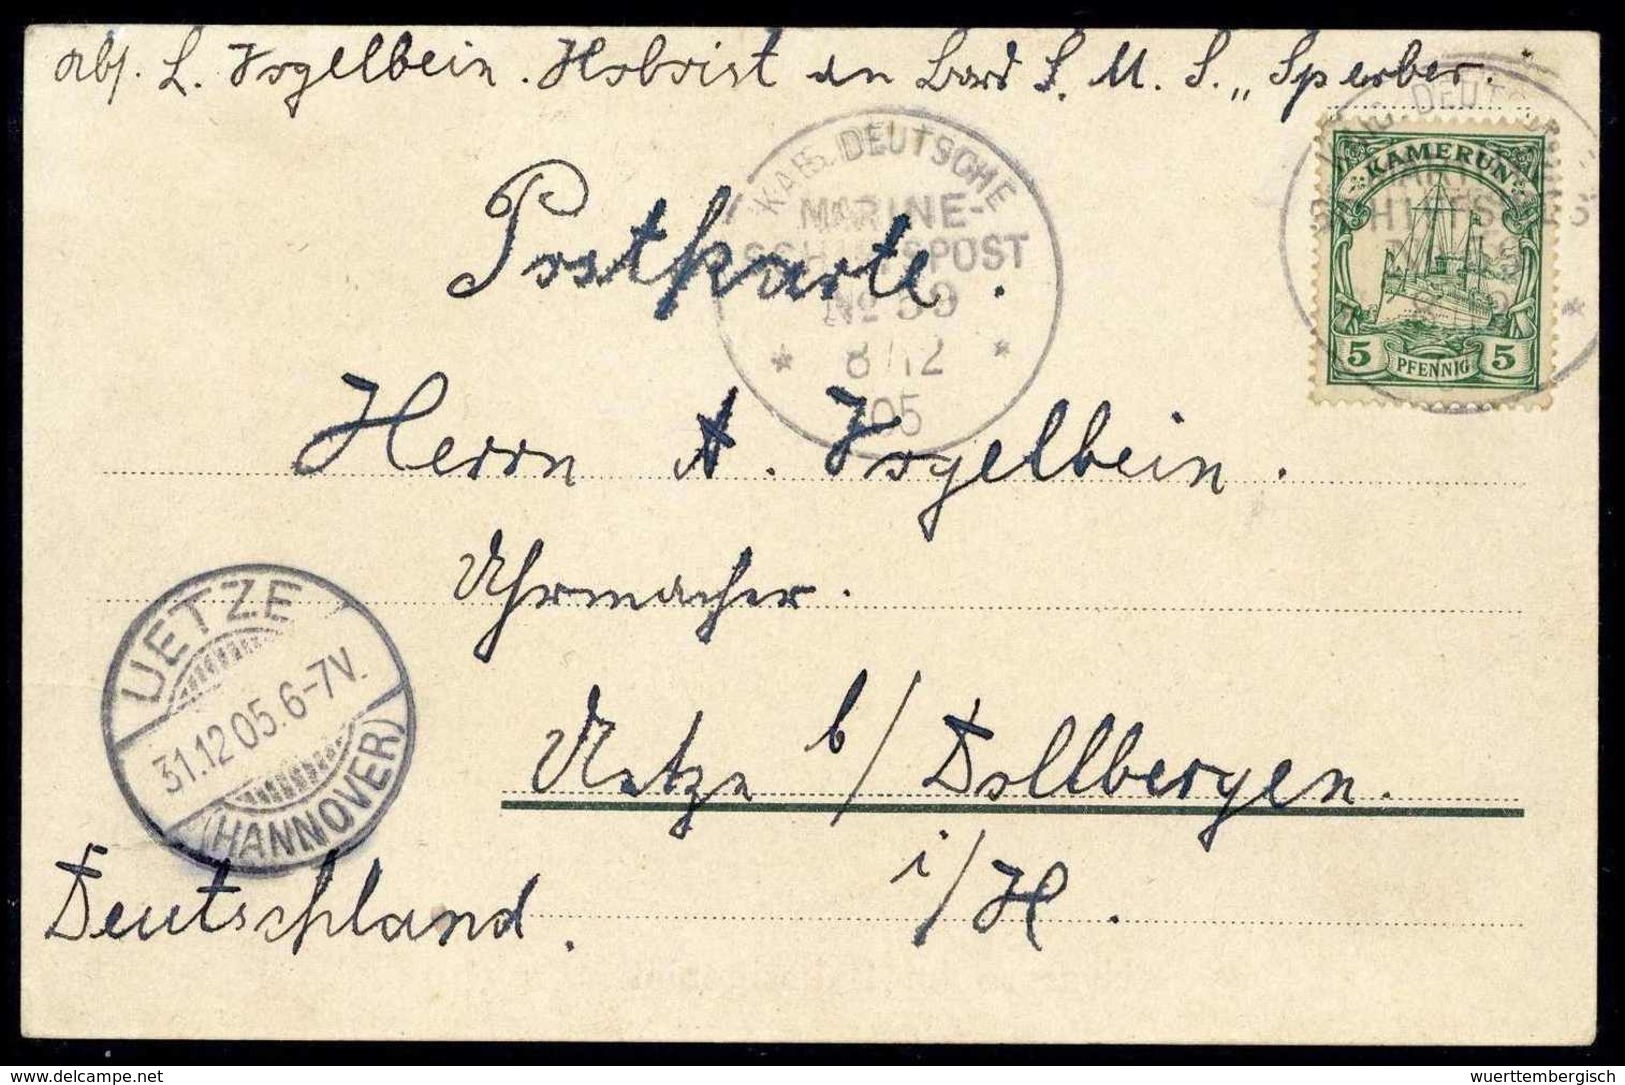 Abs. L. Vogelbein. Hoboist an Bord S. M. S. „Sperber.
KAIS. DEUTSCHE
MARINE-
SCHIFFSPOST
No 59
8/12
05
KAMERUN
5 PFENNIG 5
Postkarte.
Herrn A. Vogelbein.
Uhrmacher.
Uetze b/ Dollbergen.
i/H.
Deutschland.
UETZE
31.12 05. 6-7V.
(HANNOVER)
wuerttembergisch